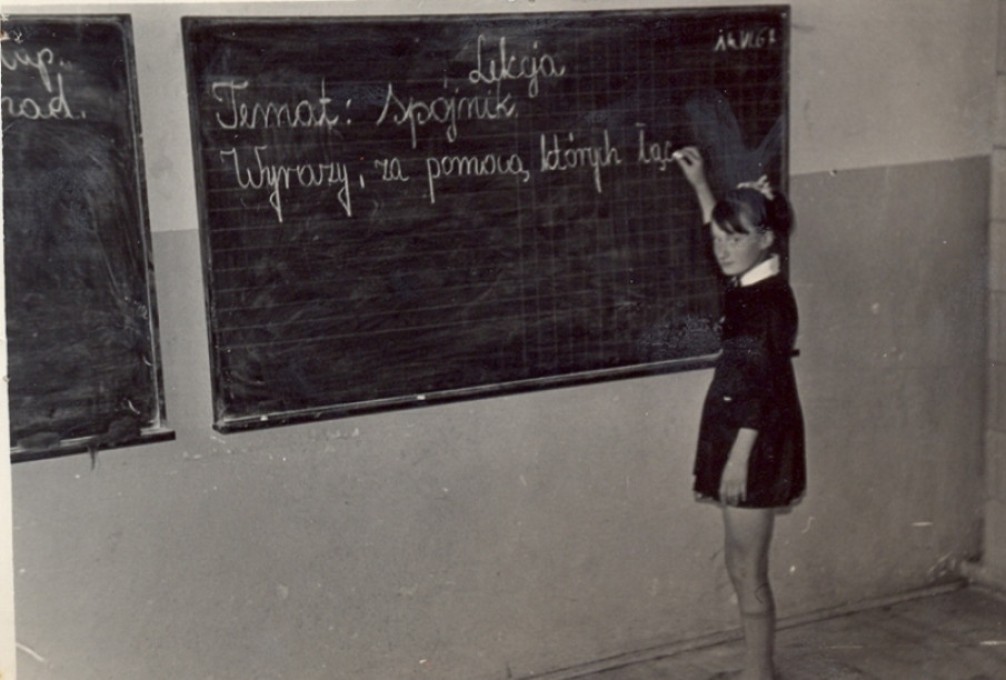 up.
nad.
Lekcja
Temat: Spójnik.
Wyrazy, za pomocą których łąc